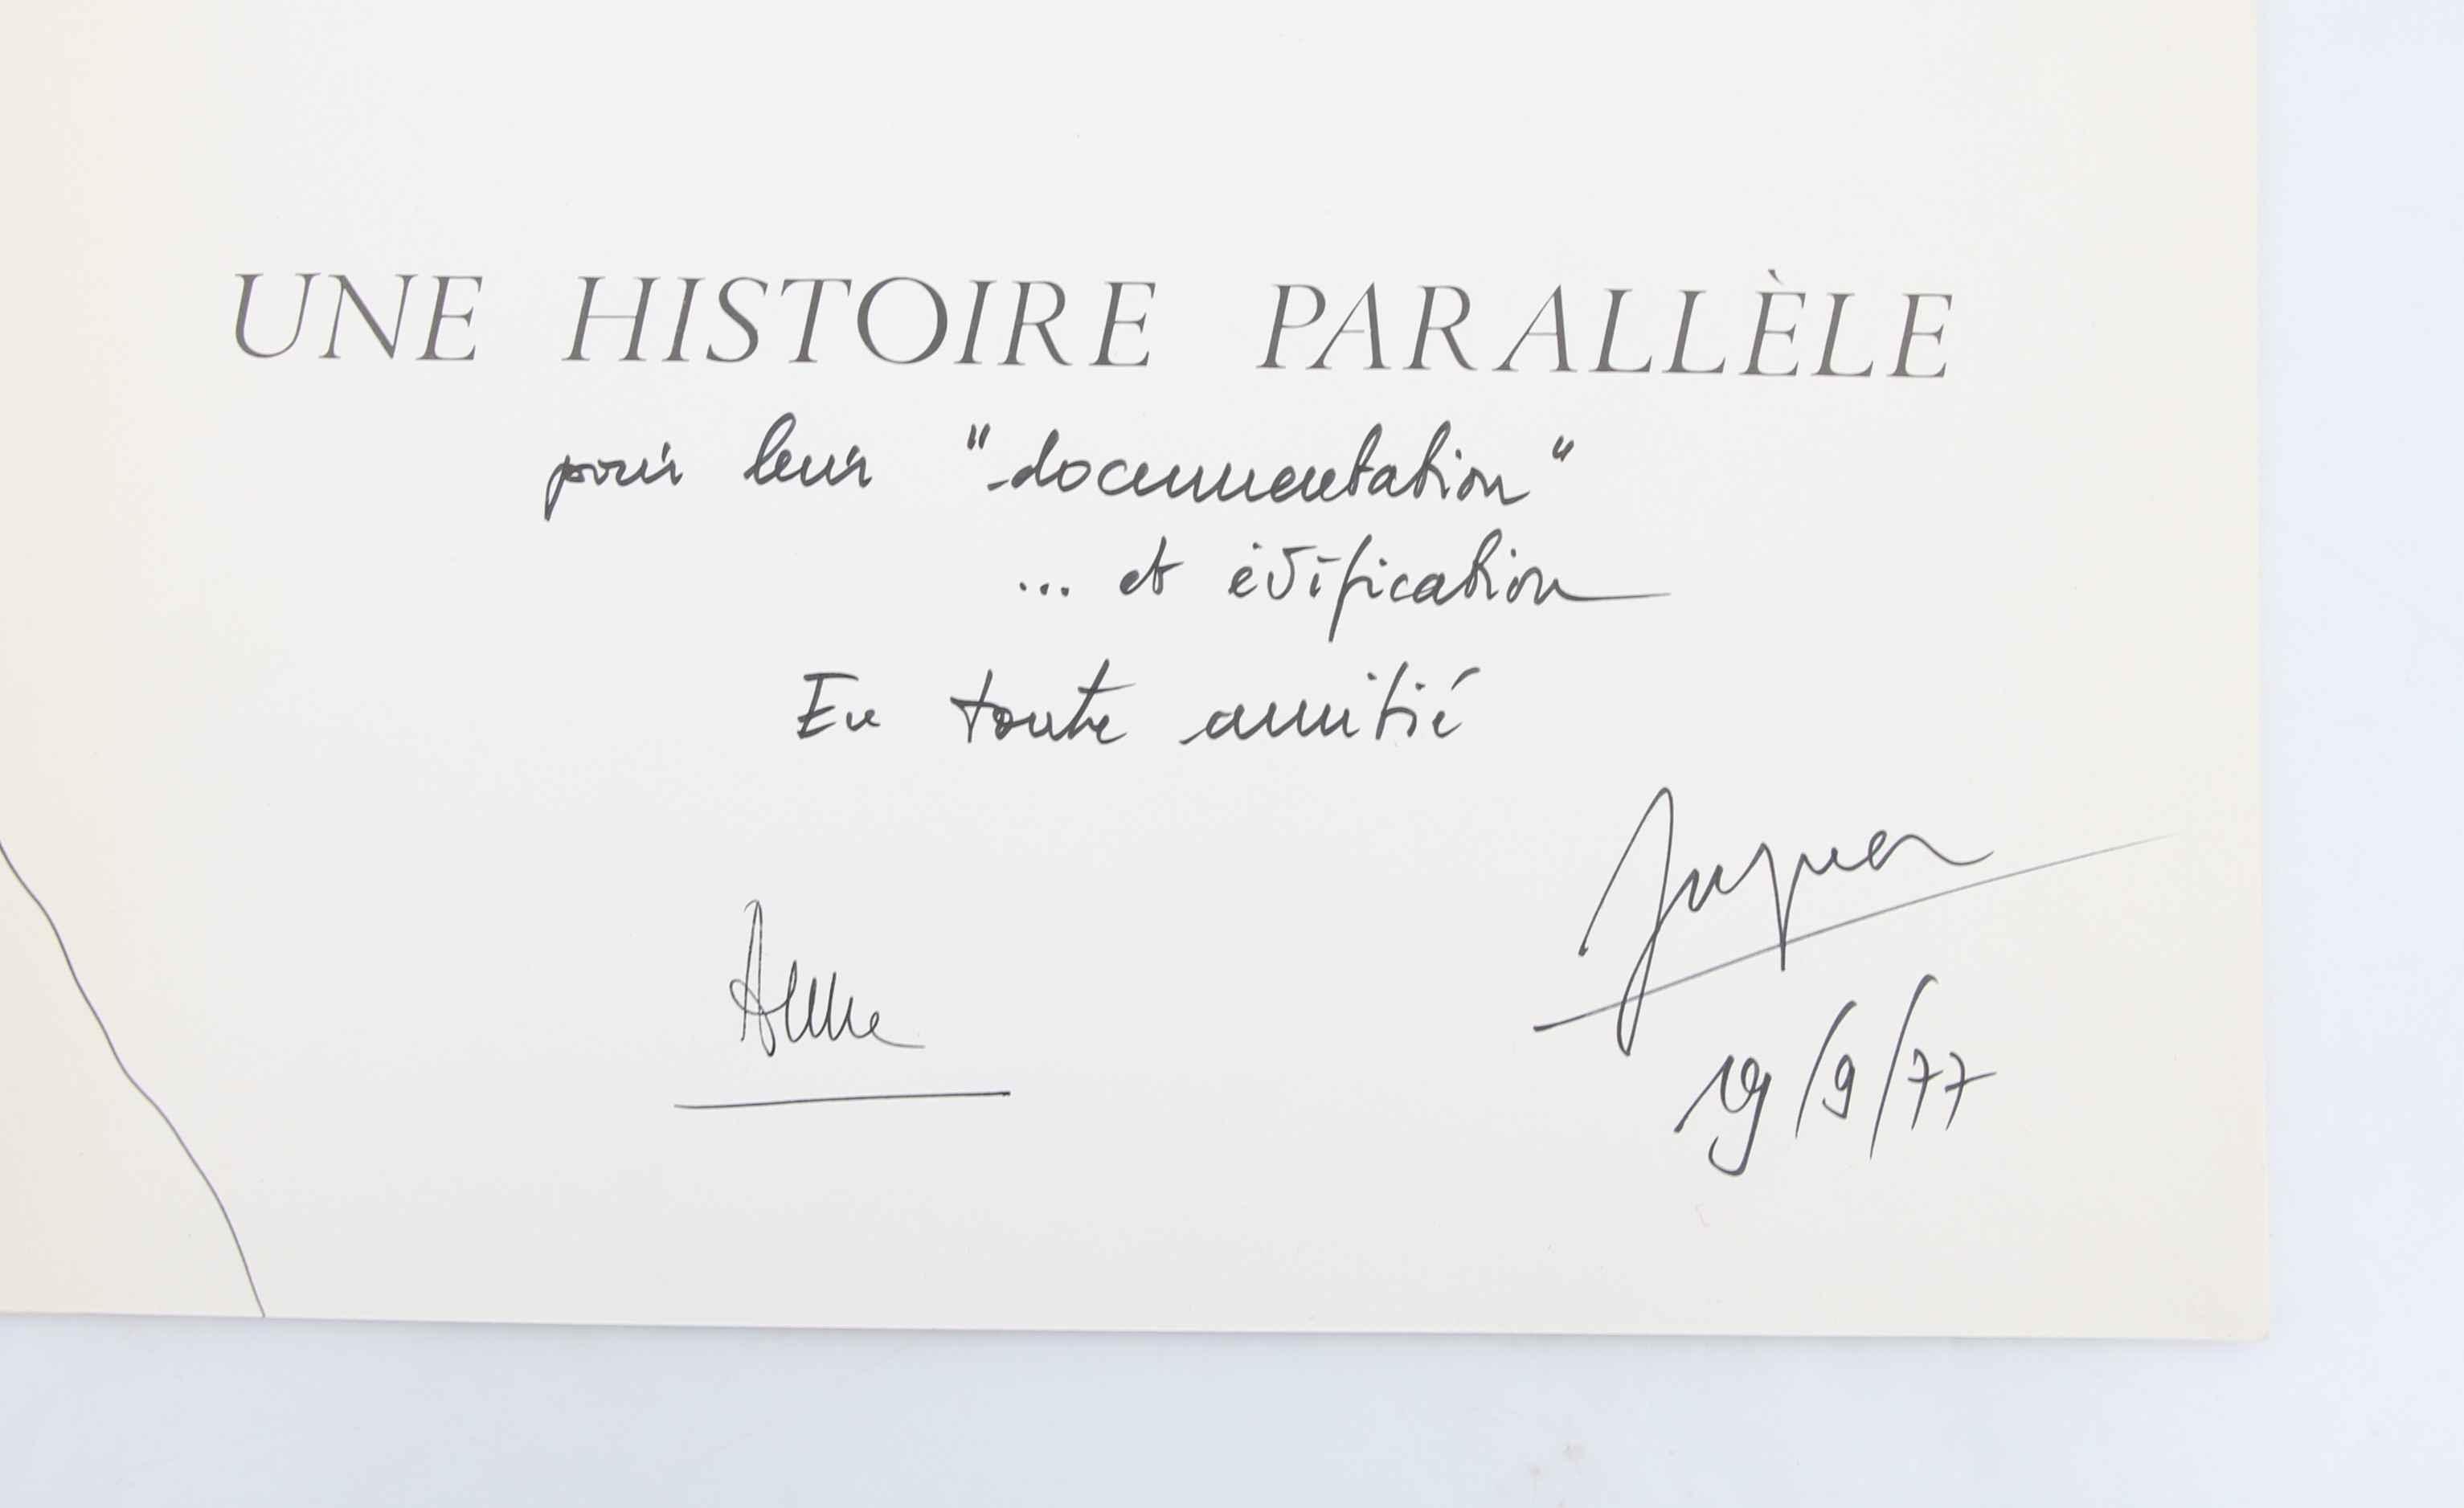 UNE HISTOIRE PARALLÈLE
pour leur "documentation"
... et édification
En toute amitié
Jacques
Anne
19/9/77